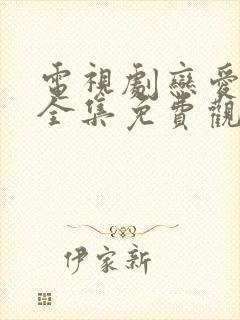 電視劇戀愛
全集免費觀
伊家新